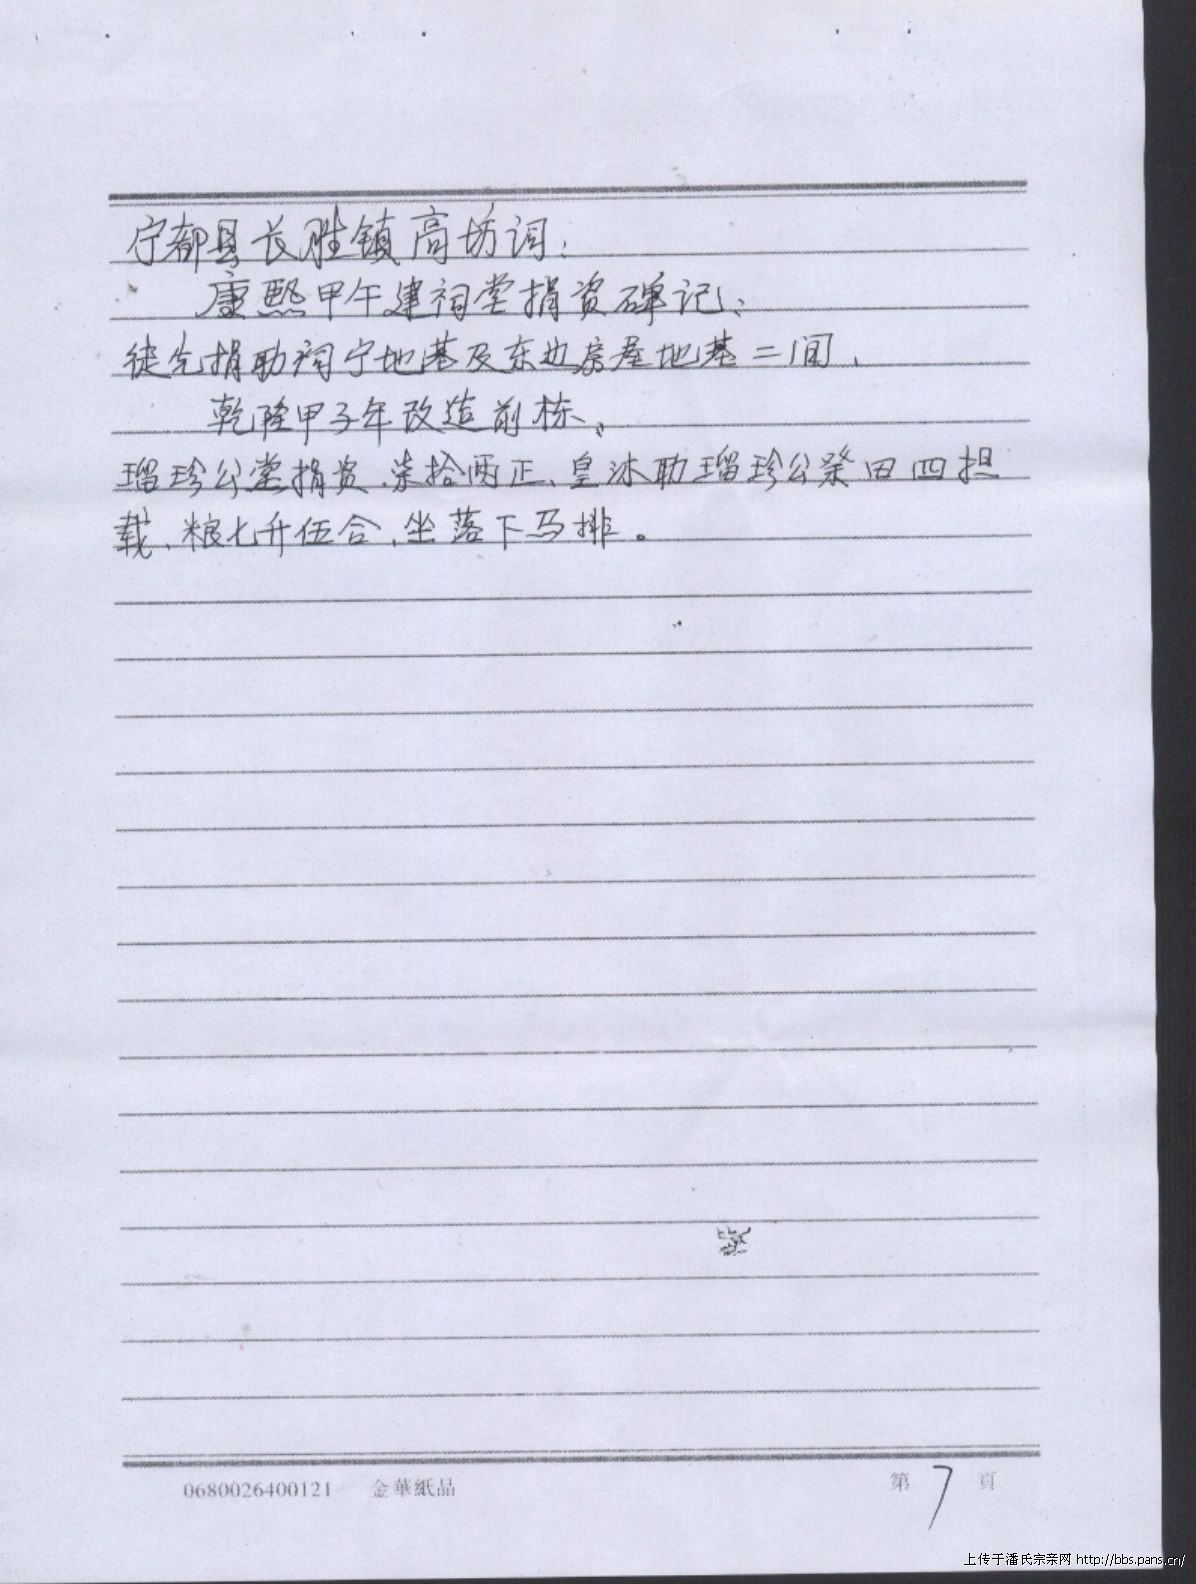 宁都县长胜镇高坊词：
康熙甲午建祠堂捐资碑记：
徒先捐助祠宁地基及东边房屋地基二间，
乾隆甲子年改造前栋、
瑠珍公堂捐资柒拾两正、皇沐助瑠珍公祭田四担
载，粮七升伍合，坐落下马排。
0680026400121 金華紙品
第 7 頁
上传于潘氏宗亲网 http://bbs.pans.cn/